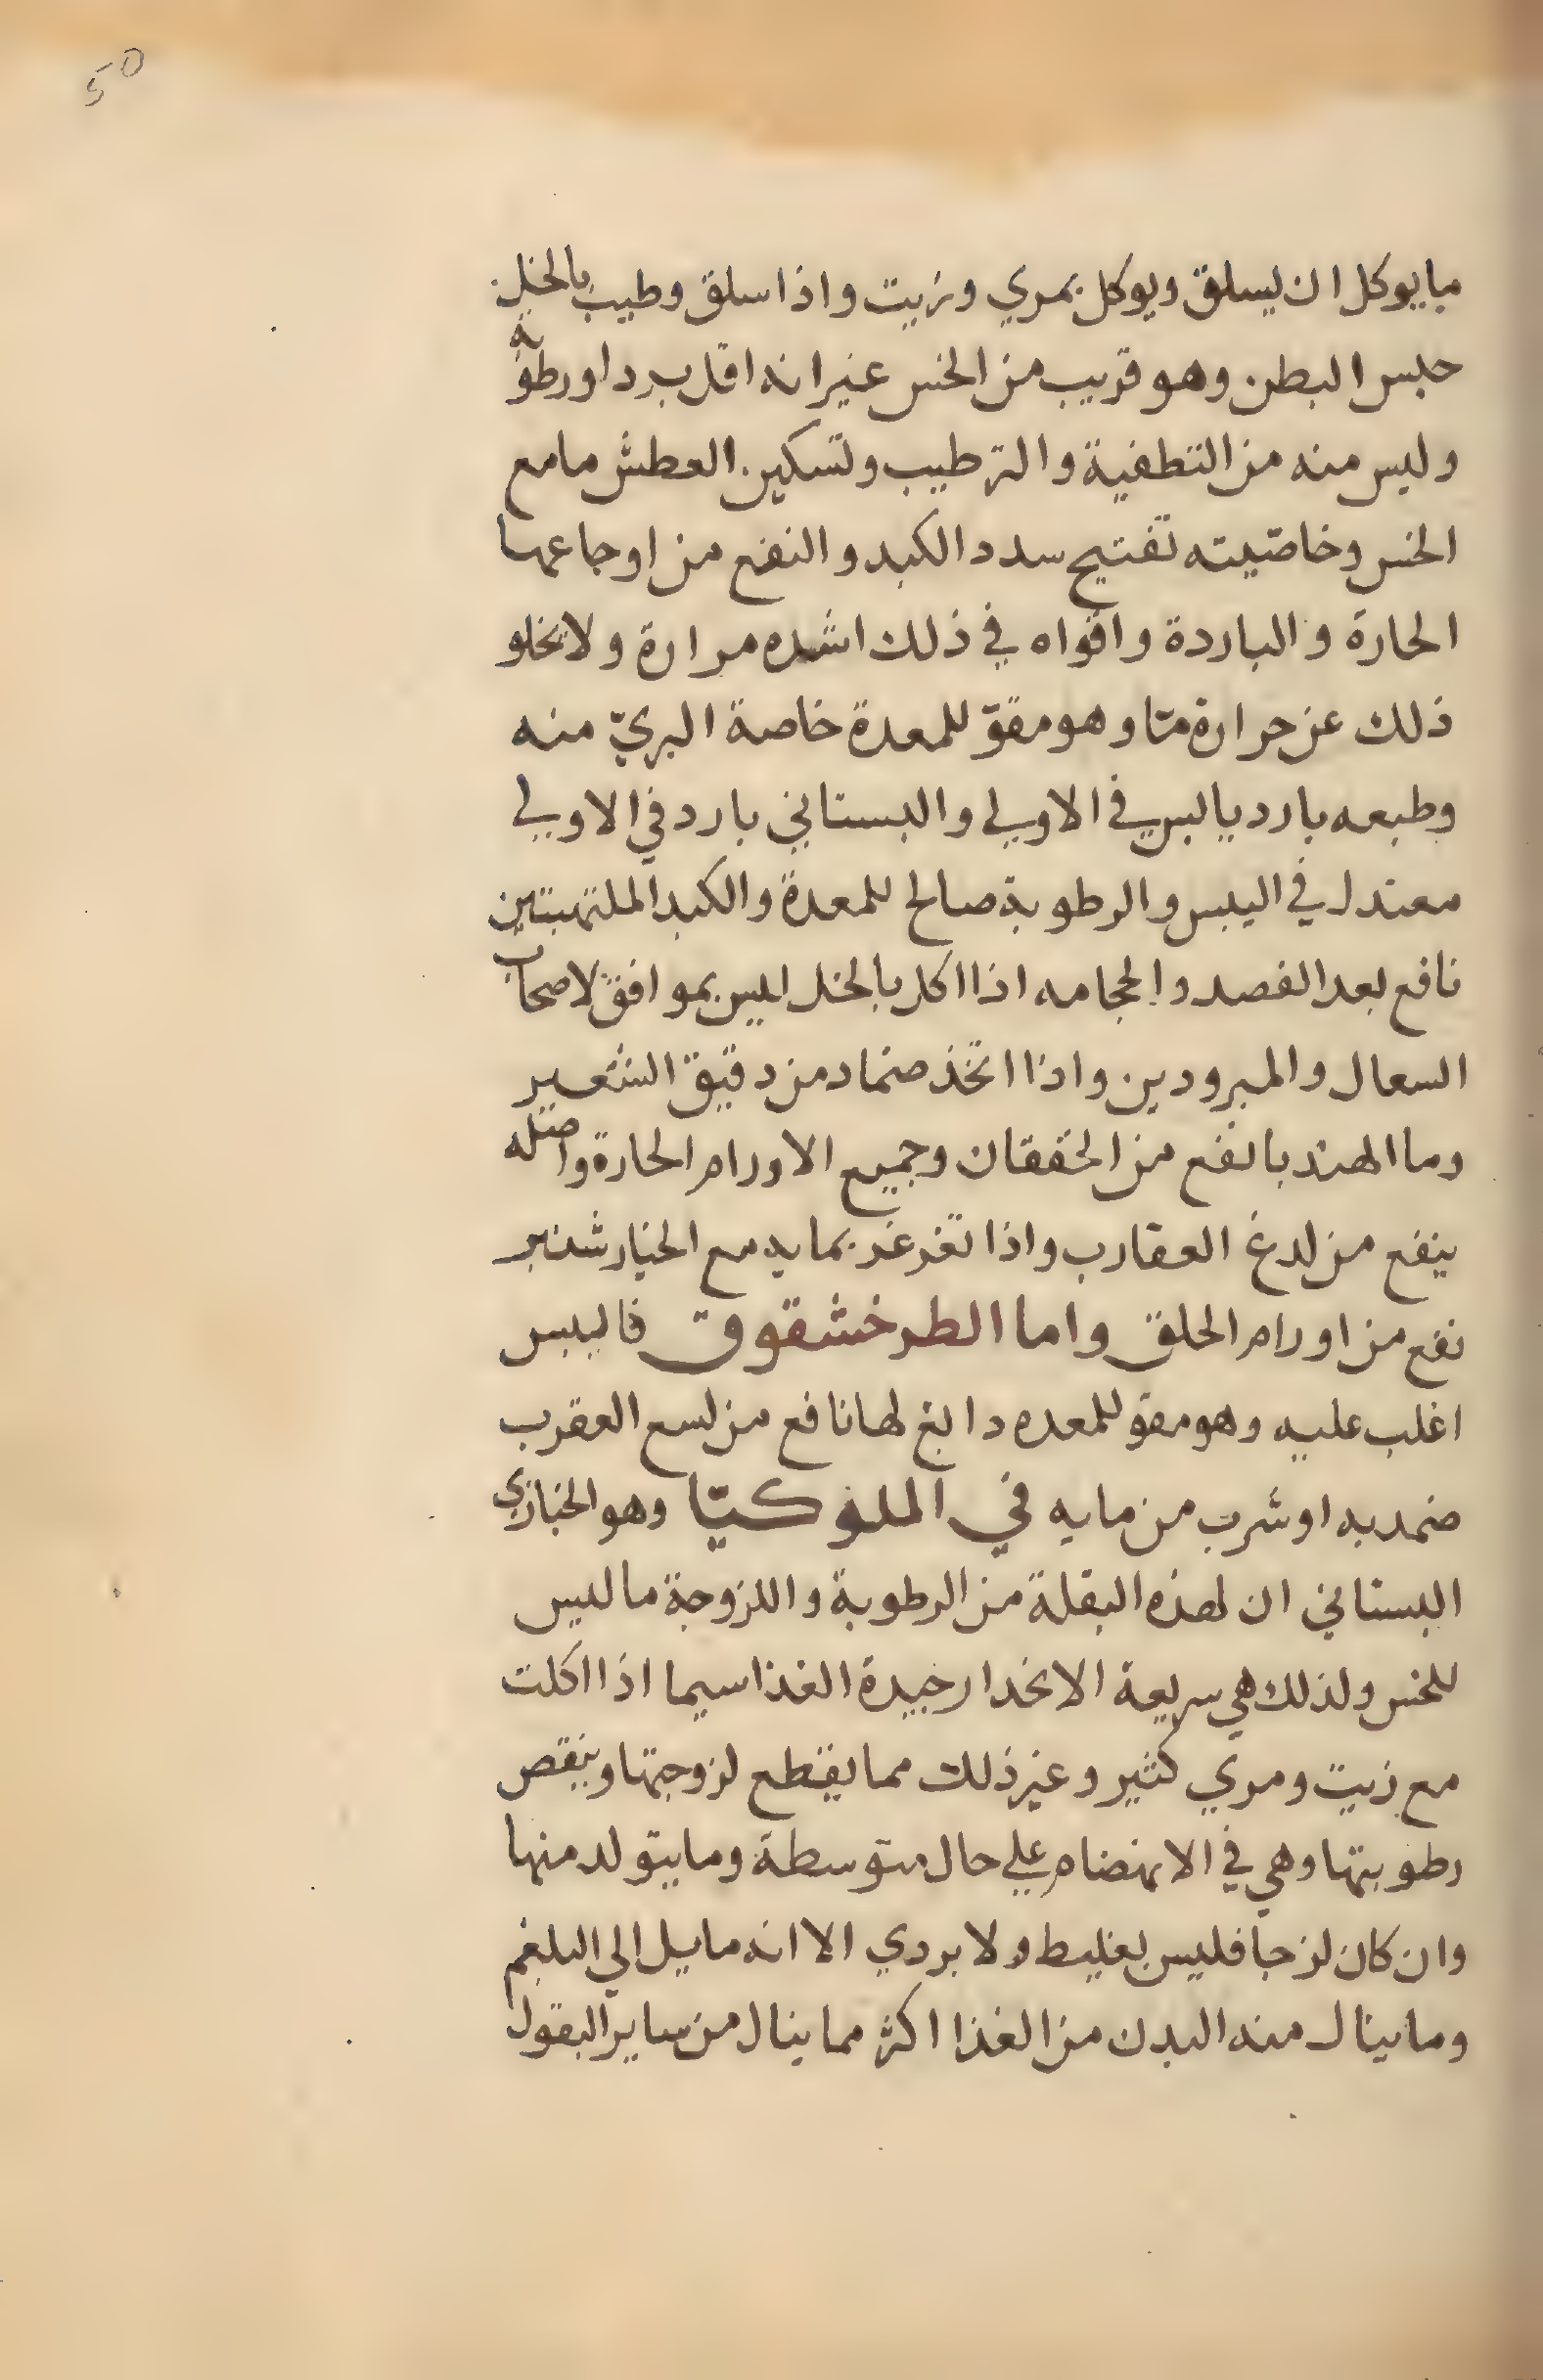 50
مايوكل ان يسلق ويوكل بمري وزيت واذا سلق وطيب بالخل
حبس البطن وهو قريب من الخس غير انه اقل بردا ورطوبة
وليس منه من التطفية والترطيب وتسكين العطش مامع
الخس وخاصّيته تفتيح سدد الكبد والنفع من اوجاعها
الحارة والباردة واقواه في ذلك اشده مرارة ولا يخلو
ذلك عن حرارة متا وهو مقوّ للمعدة خاصة البريّ منه
وطبعه بارد يابس في الاولي والبستاني بارد في الاولي
معتدل في اليبس والرطوبة صالح للمعدة والكبد الملتهبتين
نافع بعد الفصد والحجامه اذا اكل بالخل ليس بموافق لاصحاب
السعال والمبرودين واذا اتخذ ضماد من دقيق الشعير
وما الهندبا نفع من الخفقان وجميع الاورام الحارة واصله
ينفع من لدغ العقارب واذا تغرغر بمايه مع الخيارشنبر
نفع من اورام الحلق واما الطرخشقوق فاليبس
اغلب عليه وهو مقو للمعده دابغ لها نافع من لسع العقرب
ضمد به او شرب من مايه في الملوكيّا وهو الخبازي
البستاني ان لهذه البقلة من الرطوبة واللزوجة ما ليس
للخس ولذلك هي سريعة الانحدار جيدة الغذا سيما اذا اكلت
مع زيت ومري كثير وغير ذلك مما يقطع لزوجتها وينقص
رطوبتها وهي في الانهضام علي حال متوسطة وما يتولد منها
وان كان لزجا فليس بغليط ولا بردي الا انه مايل الي البلغم
وما ينال منه البدن من الغذا اكثر مما ينال من ساير البقول